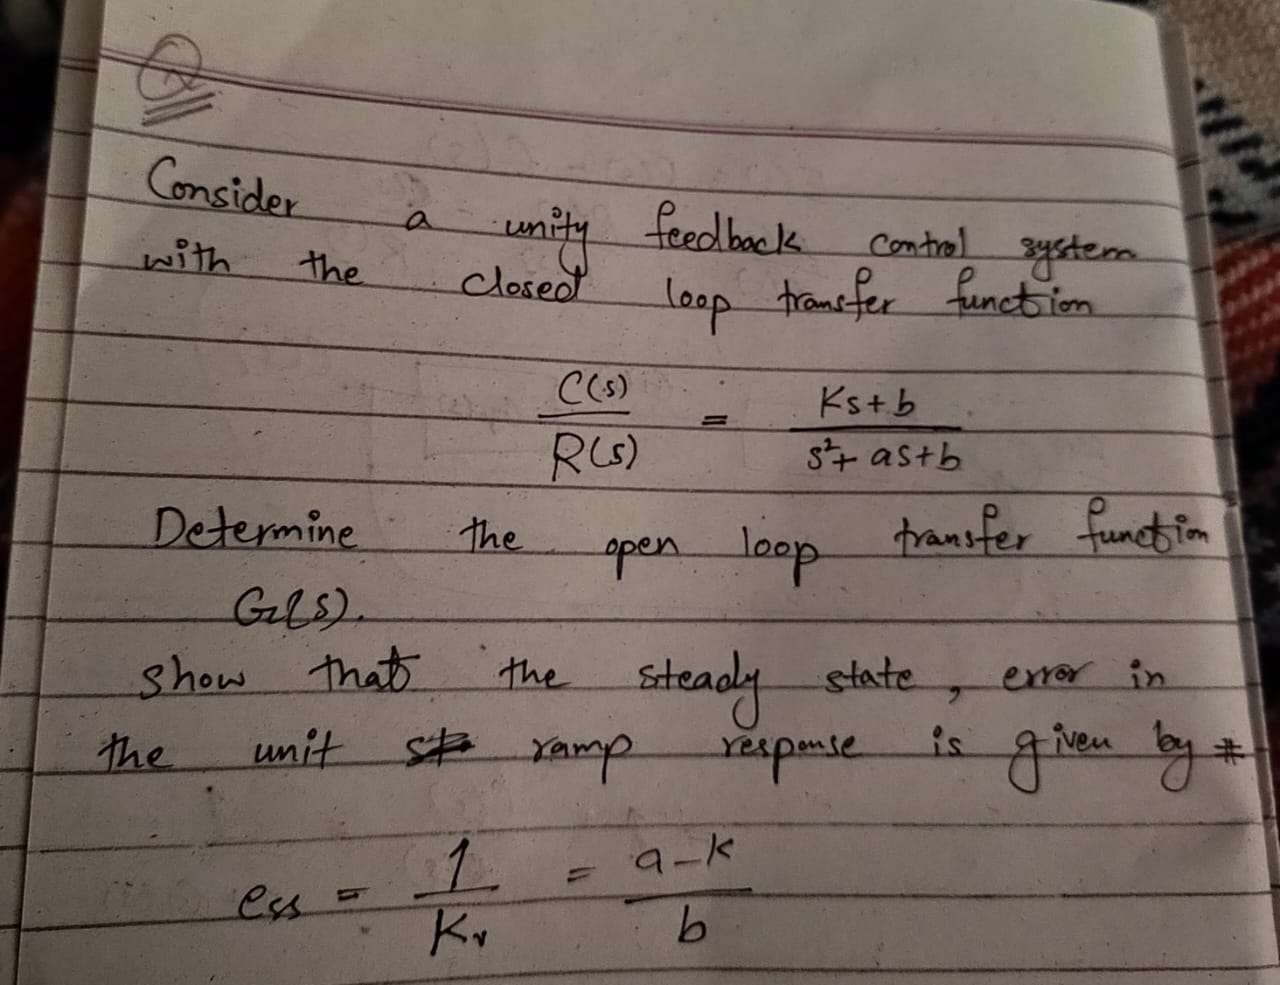 Q
Consider a unity feedback control system
with the closed loop transfer function
C(s)/R(s) = Ks+b/s²+as+b
Determine the open loop transfer function
G(s).
show that the steady state, error in
the unit ramp response is given by
ess = 1/Kv = a-K/b